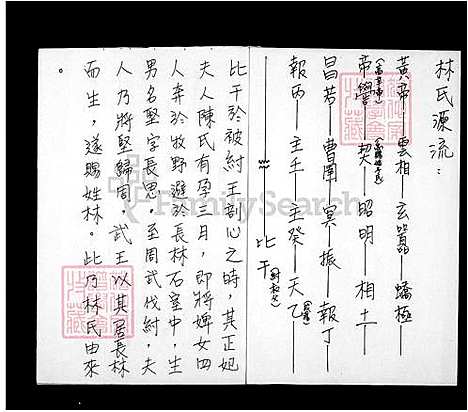 林氏源流：
黃帝——雲相——玄囂——蟜極
帝嚳——契——昭明——相土
昌若——曹圉——冥——振——報丁
報丙——主壬——主癸——天乙
比干
比干於被紂王剖心之時，其正妃
夫人陳氏有孕三月，即將婢女四
人奔於牧野避於長林石室中，生
男名堅字長思。至周武伐紂，夫
人乃將堅歸周，武王以其居長林
而生，遂賜姓林。此乃林氏由來
。
FamilySearch